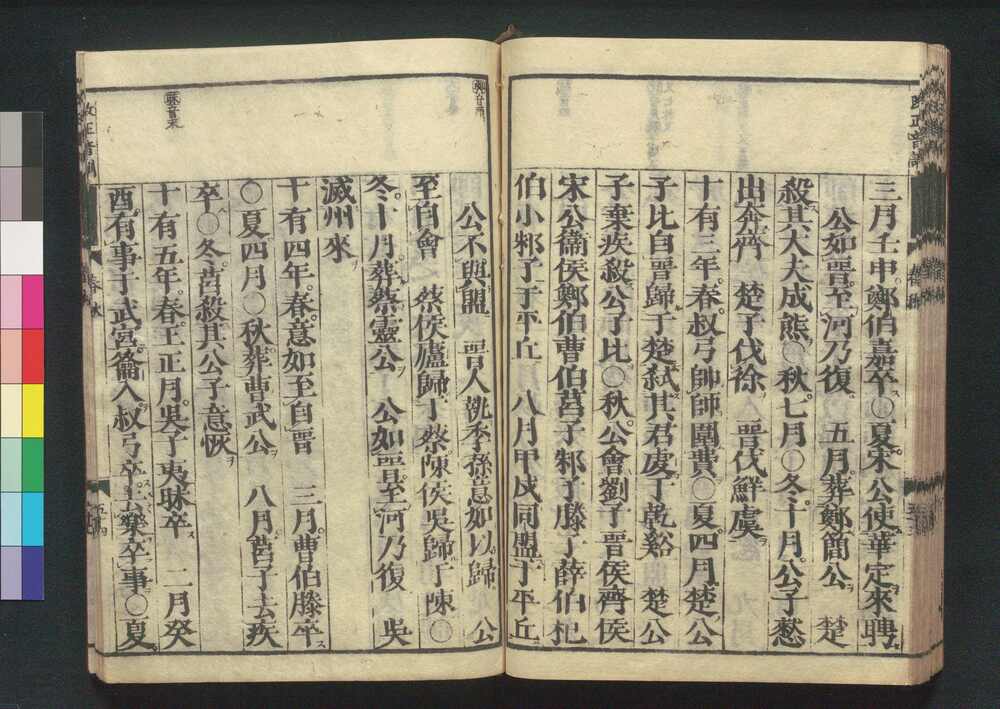 三月壬申鄭伯嘉卒○夏宋公使華定來聘
公如晋至河乃復 五月葬鄭簡公 楚
殺其大夫成熊○秋七月○冬十月公子憖
出奔齊 楚子伐徐 晋伐鮮虞
十有三年春叔弓帥師圍費○夏四月楚公
子比自晋歸于楚弑其君虔于乾谿 楚公
子棄疾殺公子比○秋公會劉子晋侯齊侯
宋公衞侯鄭伯曹伯莒子邾子滕子薛伯杞
伯小邾子于平丘 八月甲戌同盟于平丘
公不與盟 晋人執季孫意如以歸 公
至自會 蔡侯廬歸于蔡陳侯吳歸于陳○
冬十月葬蔡靈公 公如晋至河乃復 吳
滅州來
十有四年春意如至自晋 三月曹伯滕卒
○夏四月○秋葬曹武公 八月莒子去疾
卒○冬莒殺其公子意恢
十有五年春王正月吳子夷昧卒 二月癸
酉有事于武宮籥入叔弓卒去樂卒事○夏
昧音末
改正音訓
春秋